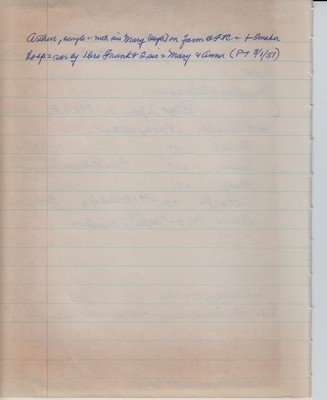 Arthur, single = with sis Mary lived on farm @ POC = + Omaha
hosp = sur by bros Frank + & sis = Mary & Anna (PT 9/1/51)